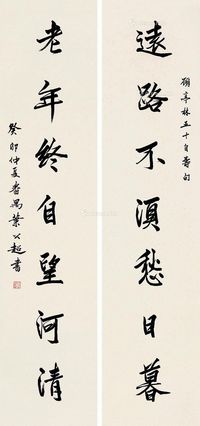 遠路不須愁日暮
顧亭林五十自壽句
老年終自望河清
癸卯仲夏番禺葉公超書